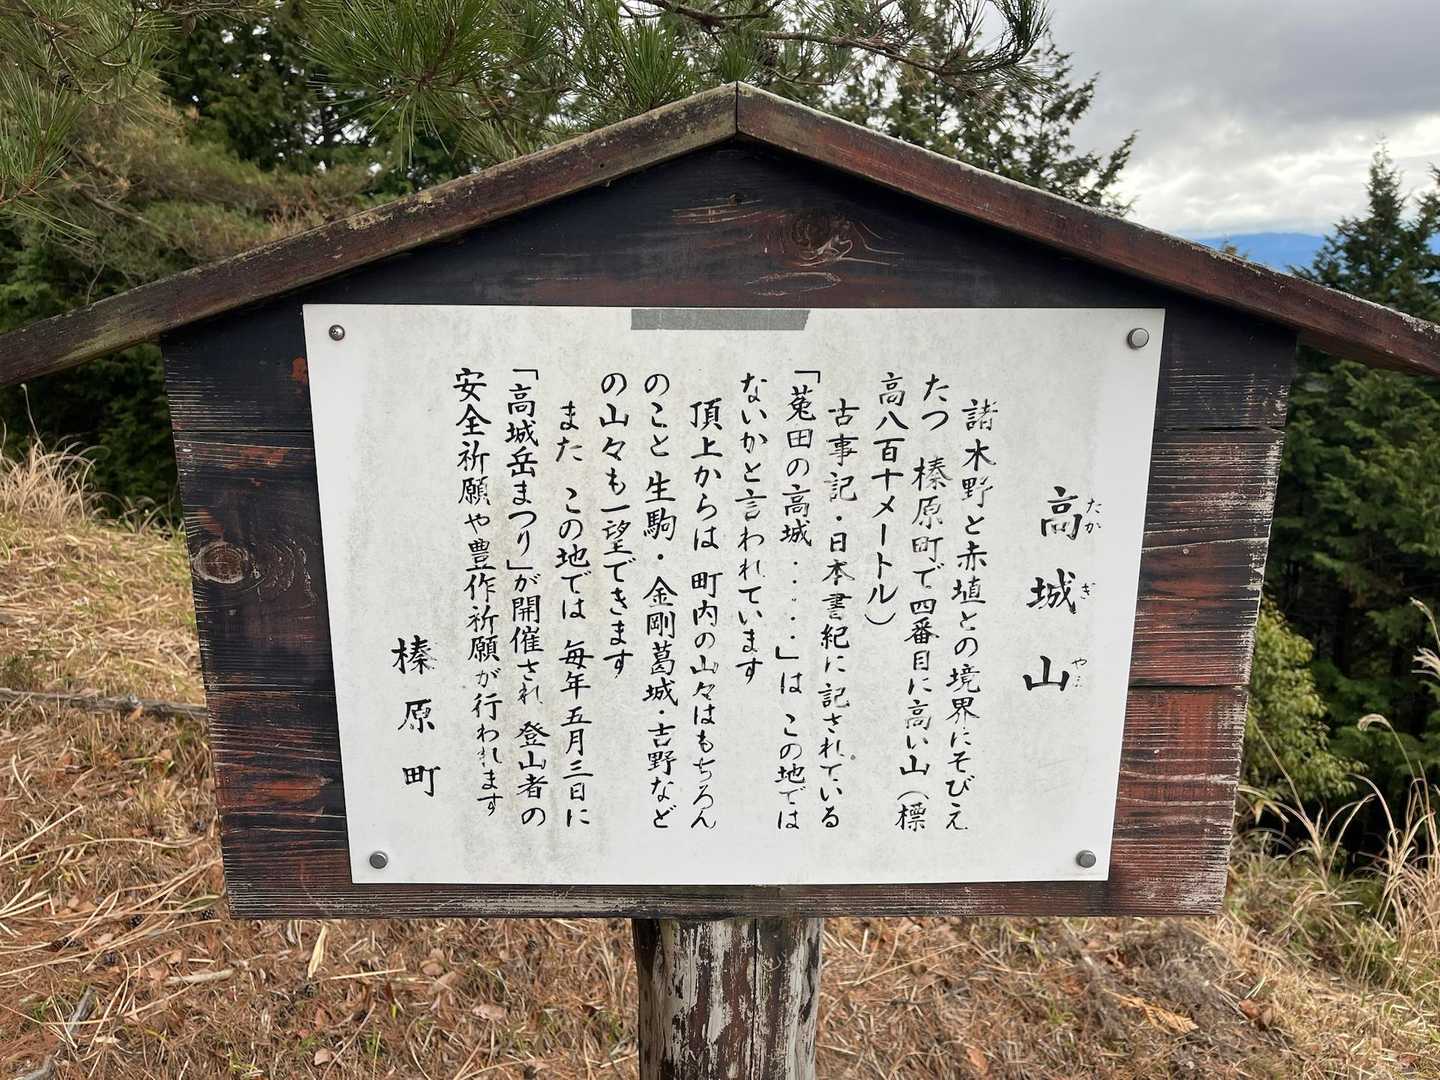 高城山
たかぎやま
諸木野と赤埴との境界にそびえ
たつ 榛原町で四番目に高い山(標
高八百十メートル)
古事記・日本書紀に記されている
「菟田の高城‥‥‥」は この地では
ないかと言われています
頂上からは 町内の山々はもちろん
のこと 生駒・金剛葛城・吉野など
の山々も一望できます
また この地では 毎年五月三日に
「高城岳まつり」が開催され 登山者の
安全祈願や豊作祈願が行われます
榛原町